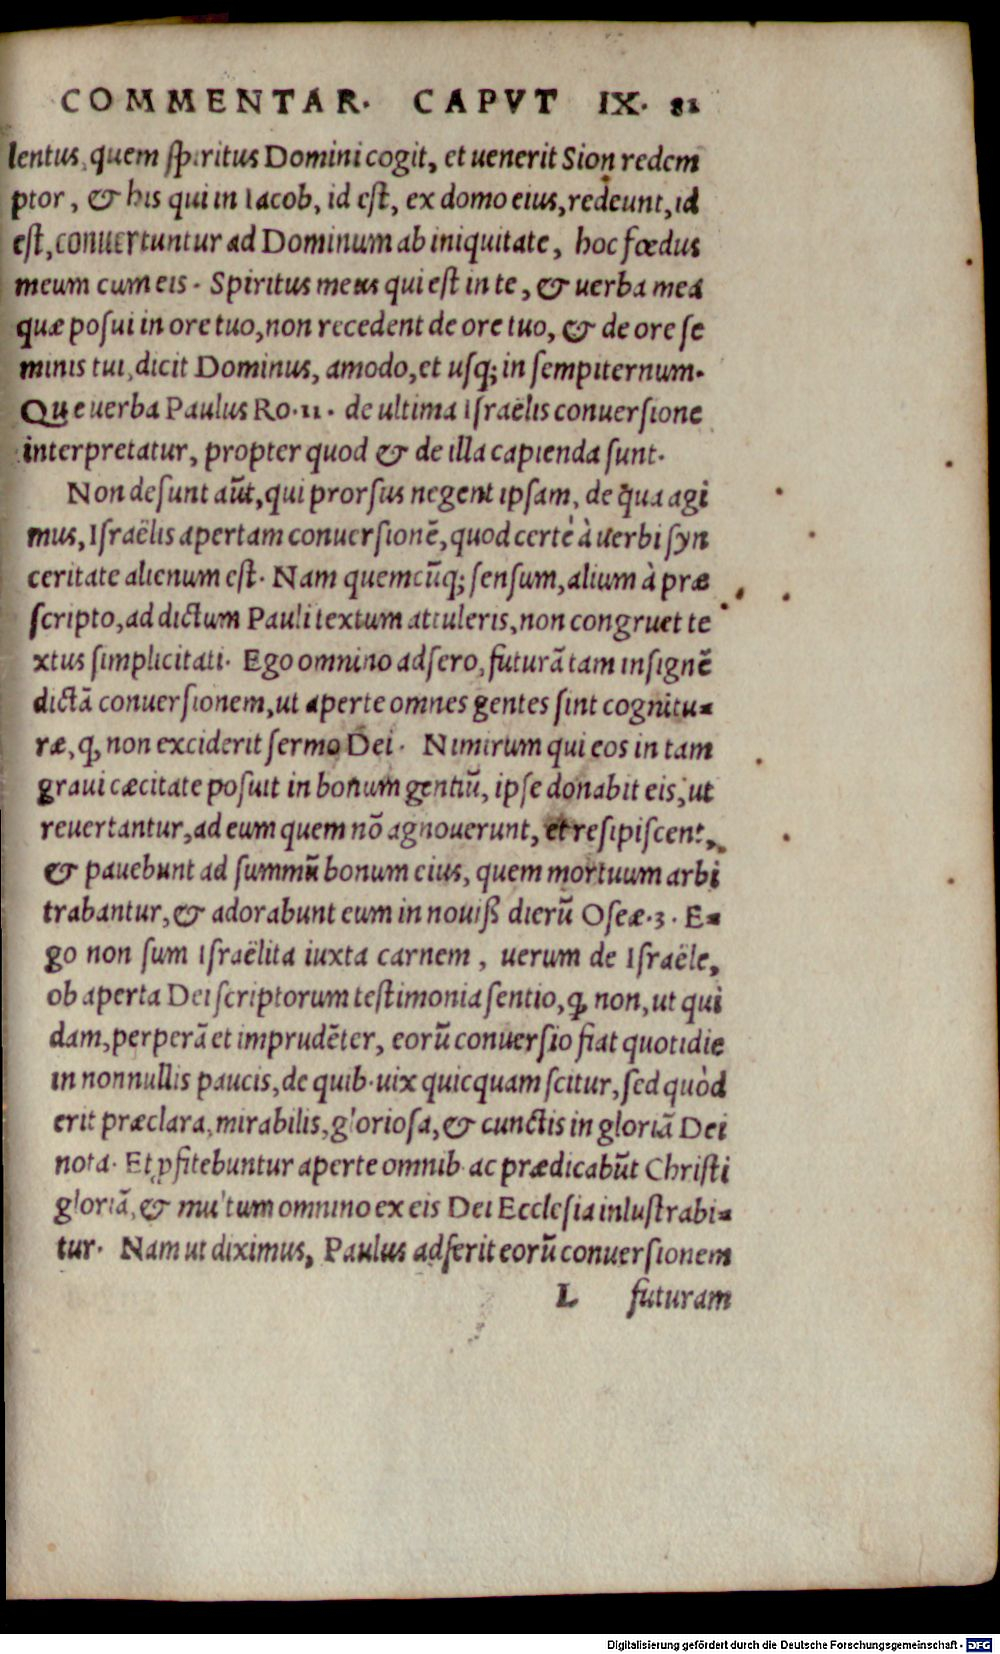 COMMENTAR. CAPVT IX. 81
lentus, quem spiritus Domini cogit, et uenerit Sion redem
ptor, & his qui in Iacob, id est, ex domo eius, redeunt, id
est, conuertuntur ad Dominum ab iniquitate, hoc fœdus
meum cum eis. Spiritus meus qui est in te, & uerba mea
quæ posui in ore tuo, non recedent de ore tuo, & de ore se
minis tui, dicit Dominus, amodo, et usq; in sempiternum.
Que uerba Paulus Ro. 11. de ultima Israëlis conuersione
interpretatur, propter quod & de illa capienda sunt.
Non desunt aũt, qui prorsus negent ipsam, de qua agi
mus, Israëlis apertam conuersionẽ, quod certè à uerbi syn
ceritate alienum est. Nam quemcũq; sensum, alium à præ
scripto, ad dictum Pauli textum attuleris, non congruet te
xtus simplicitati. Ego omnino adsero, futurã tam insignẽ
dictã conuersionem, ut aperte omnes gentes sint cognitu-
ræ, ꝙ non exciderit sermo Dei. Nimirum qui eos in tam
graui cæcitate posuit in bonum gentiũ, ipse donabit eis, ut
reuertantur, ad eum quem nõ agnouerunt, et resipiscent,
& pauebunt ad summũ bonum eius, quem mortuum arbi
trabantur, & adorabunt eum in nouiß dierũ Oseæ. 3. E-
go non sum Israëlita iuxta carnem, uerum de Israële,
ob aperta Dei scriptorum testimonia sentio, ꝙ non, ut qui
dam, perperã et imprudẽter, eorũ conuersio fiat quotidie
in nonnullis paucis, de quib. uix quicquam scitur, sed quòd
erit præclara, mirabilis, gloriosa, & cunctis in gloriã Dei
nota. Et ꝓfitebuntur aperte omnib. ac prædicabũt Christi
gloriã, & multum omnino ex eis Dei Ecclesia inlustrabi-
tur. Nam ut diximus, Paulus adserit eorũ conuersionem
L futuram
Digitalisierung gefördert durch die Deutsche Forschungsgemeinschaft - DFG